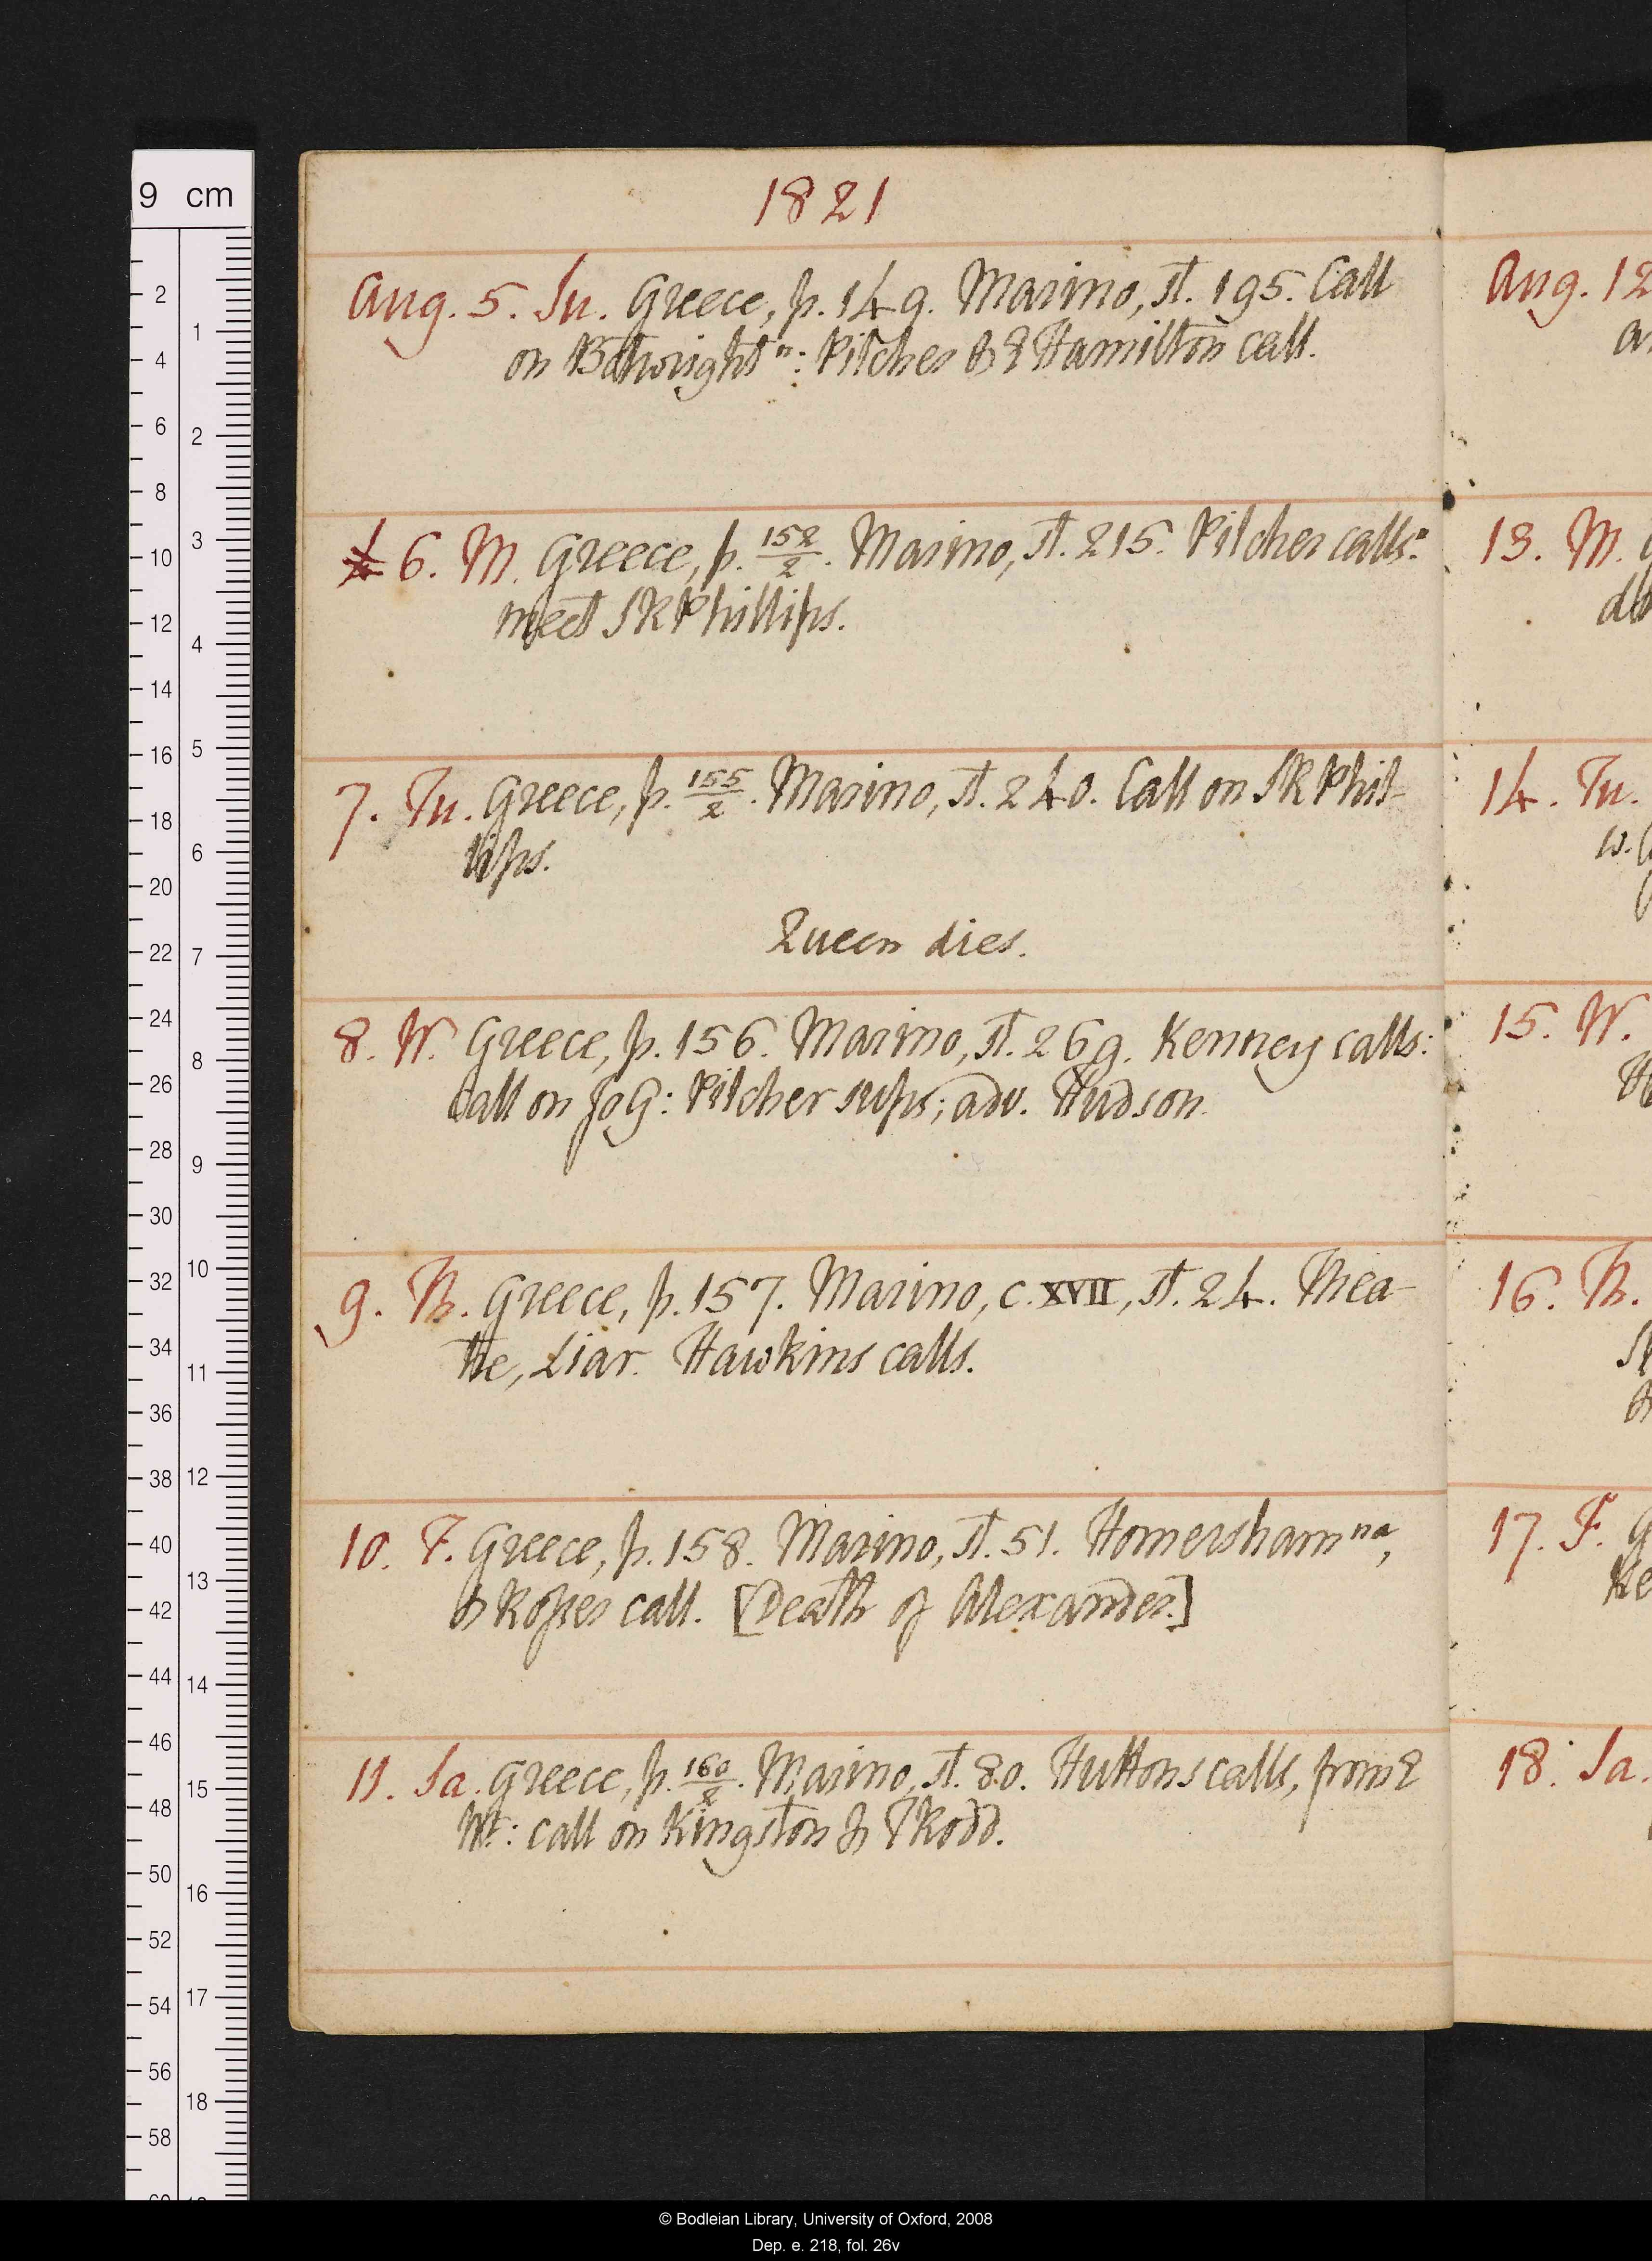 1821
Aug. 5. Su. Greece, p. 149. Marino, st. 195. Call
on Botwright n: Pilcher & E Hamilton call.
6. M. Greece, p. 152/2. Marino, st. 215. Pilcher calls:
meet SR Phillips.
7. Tu. Greece, p. 155/2. Marino, st. 240. Call on SR Phil-
lips.
Queen dies.
8. W. Greece, p. 156. Marino, st. 269. Kenney calls:
call on JoG: Pilcher sups; adv. Hudson.
9. Th. Greece, p. 157. Marino, c. XVII, st. 24. Thea-
tre, Liar. Hawkins calls.
10. F. Greece, p. 158. Marino, st. 51. Homersham na,
& Roper call. [Death of Alexander.]
11. Sa. Greece, p. 160/2. Marino, st. 80. Huttons calls, from E
M: call on Kingston & T Rodd.
Aug. 12
13. M.
14. Tu.
15. W.
16. Th.
17. F.
18. Sa.
9 cm
2
4
6
8
10
12
14
16
18
20
22
24
26
28
30
32
34
36
38
40
42
44
46
48
50
52
54
56
58
1
2
3
4
5
6
7
8
9
10
11
12
13
14
15
16
17
18
© Bodleian Library, University of Oxford, 2008
Dep. e. 218, fol. 26v